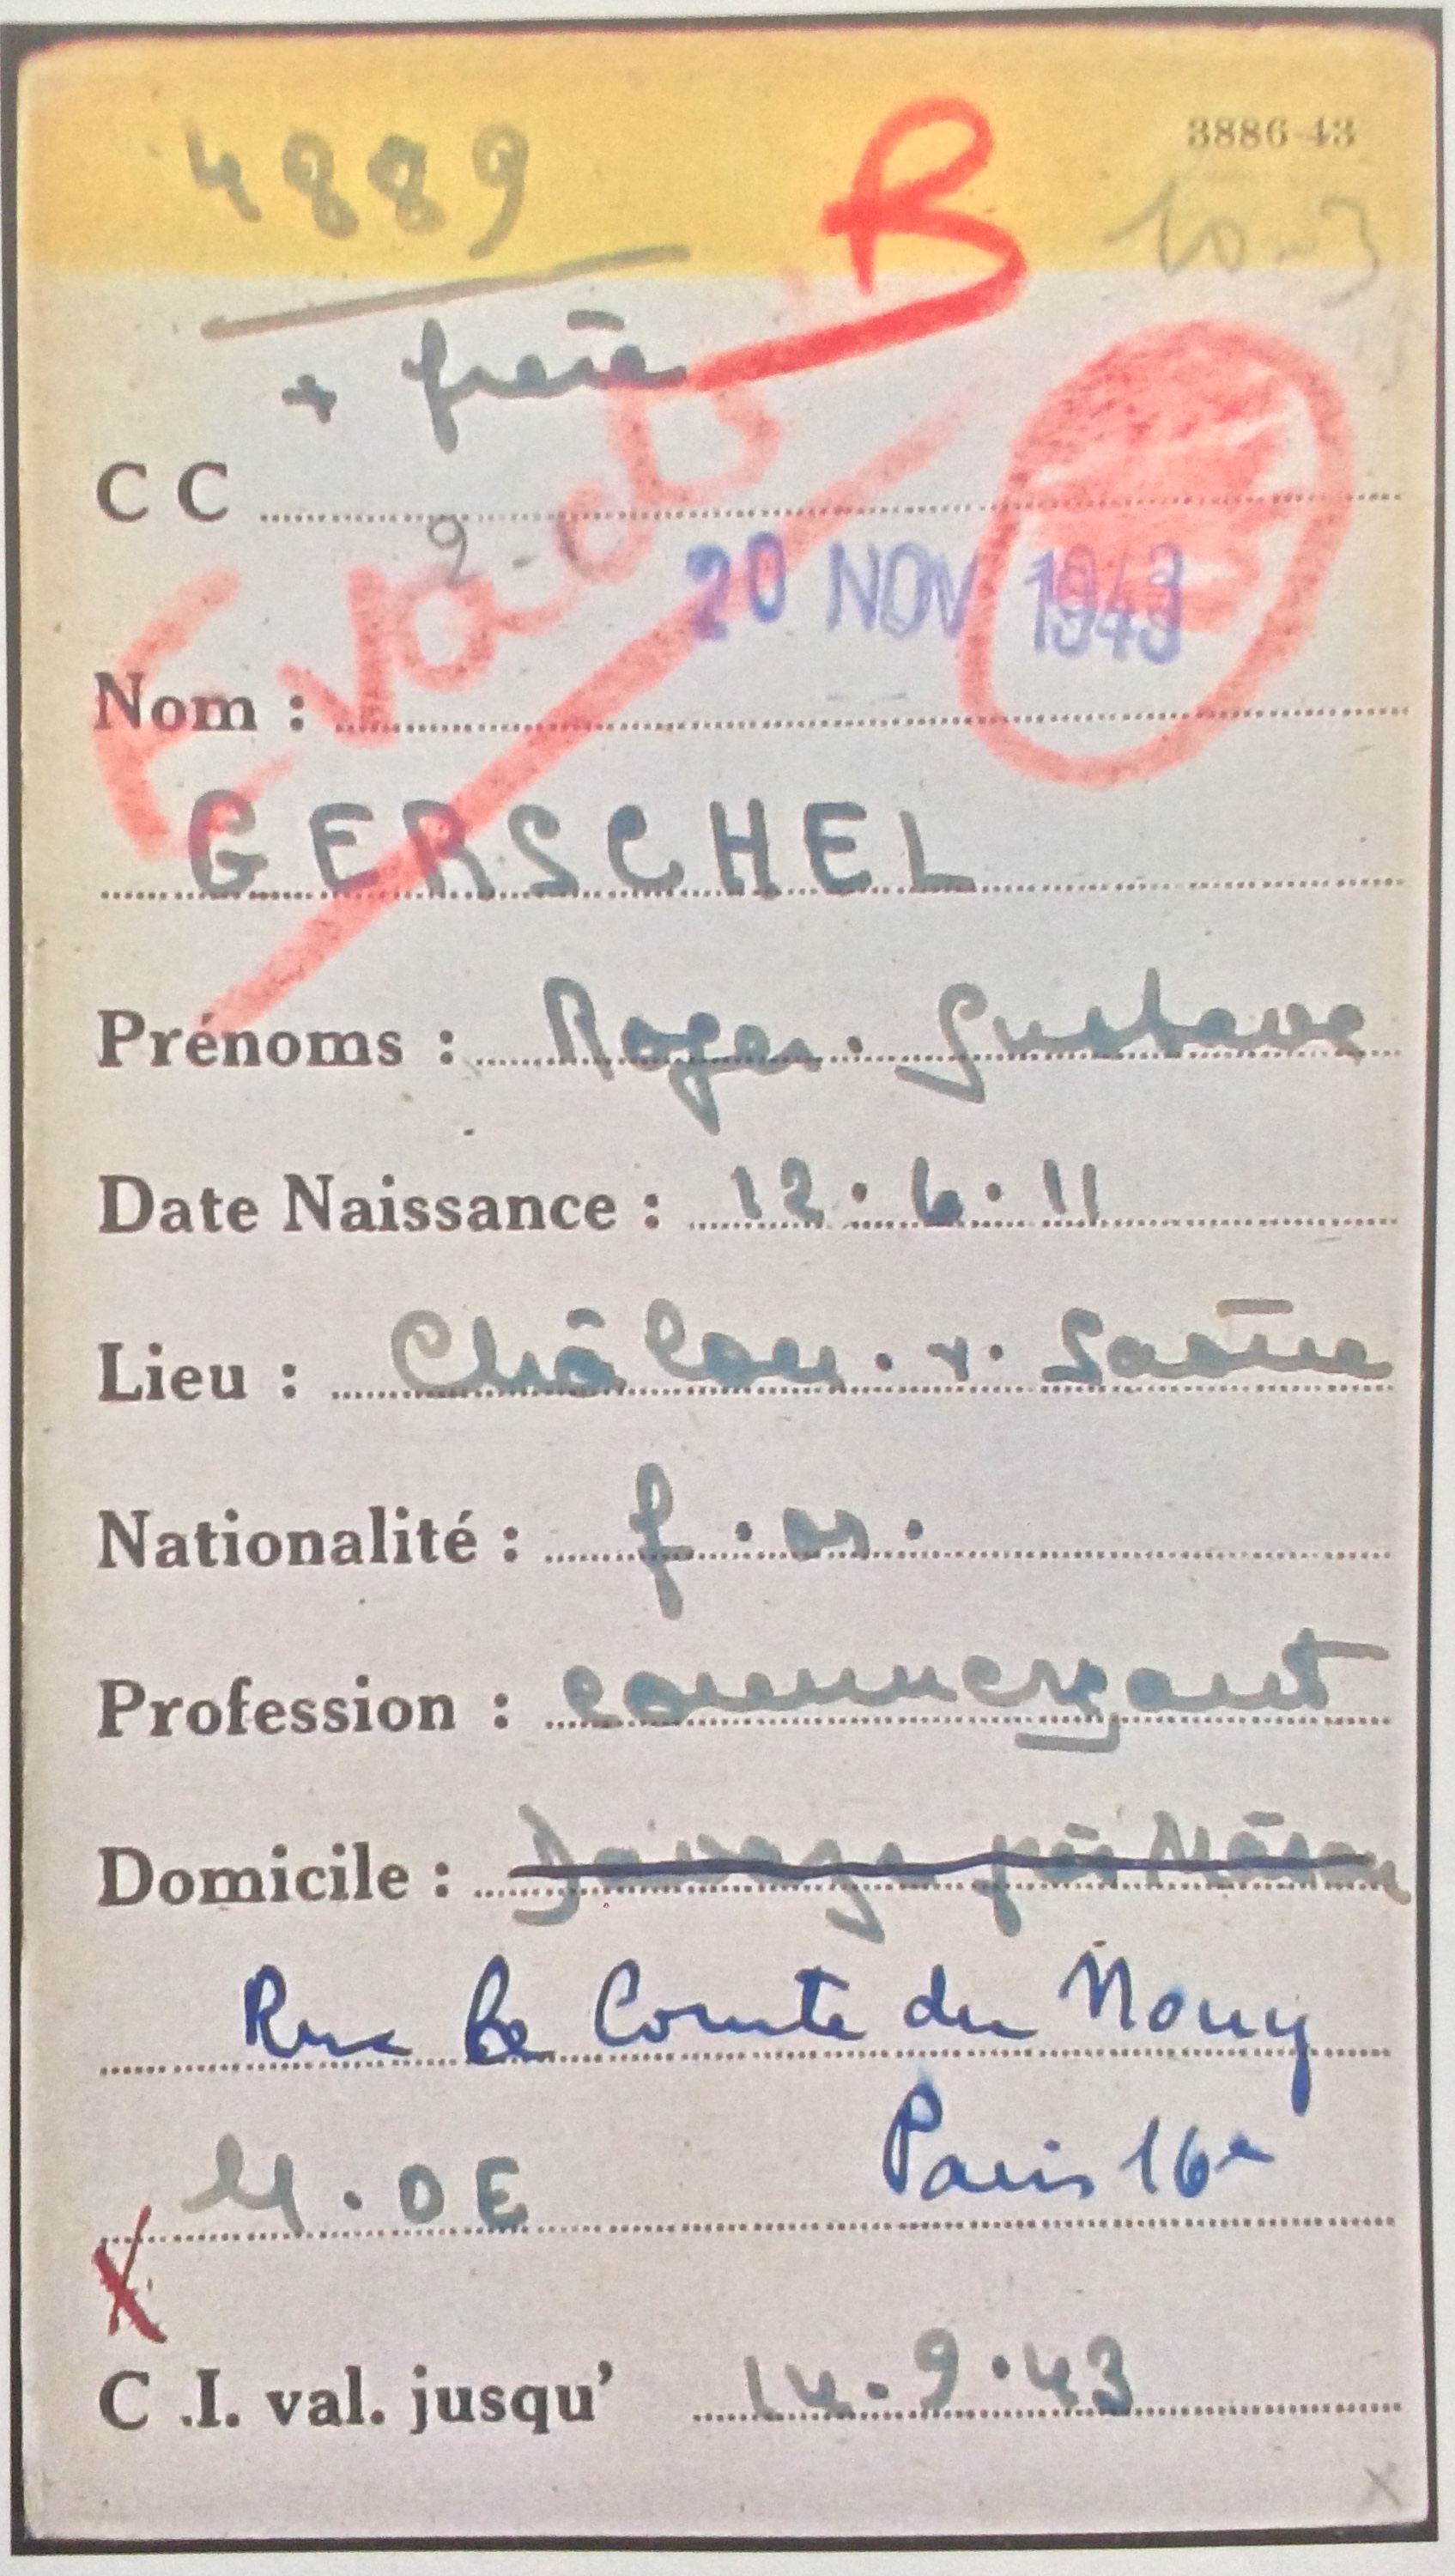 4889
B
3886-43
10-3
+ frère
C C
Evadé
20 NOV 1943
Nom :
GERSCHEL
Prénoms : Roger. Gustave
Date Naissance : 12.6.11
Lieu : Châlon. s. Saône
Nationalité : f. or.
Profession : commerçant
Domicile : près Mâcon
Rue Le Comte du Nouy
Paris 16e
M. OE
C .I. val. jusqu' 14.9.43